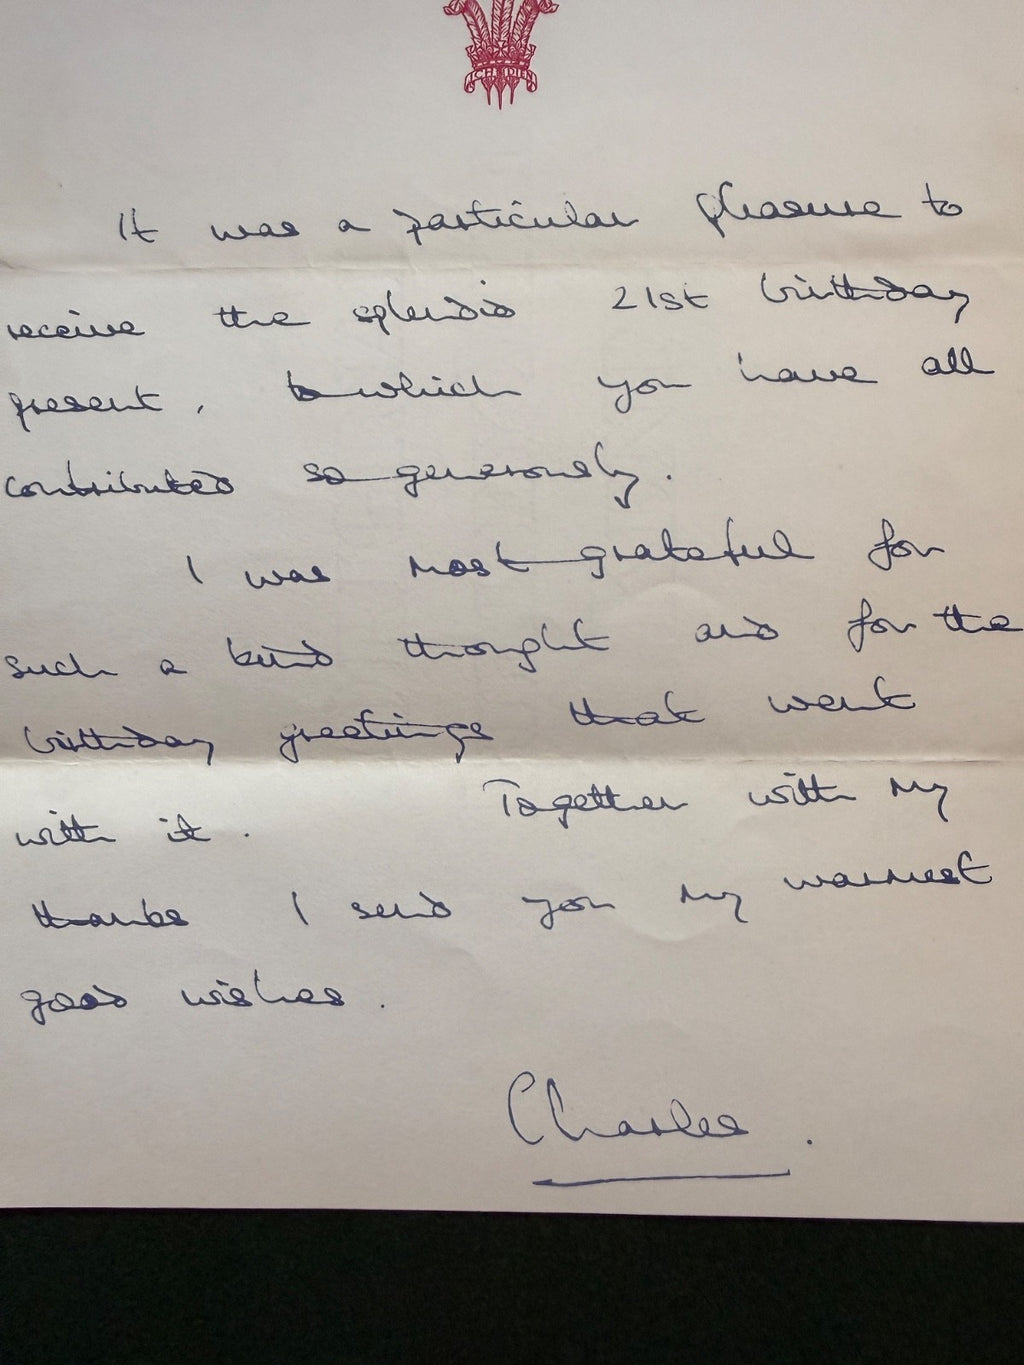 ICH DIEN
It was a particular pleasure to
receive the splendid 21st birthday
present, to which you have all
contributed so generously.
I was most grateful for
such a kind thought and for the
birthday greetings that went
with it. Together with my
thanks I send you my warmest
good wishes.
Charles.